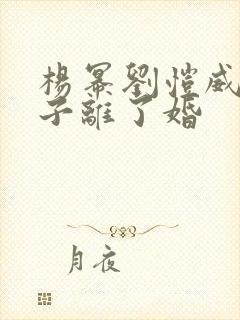 楊冪劉愷威
子離了婚
月夜